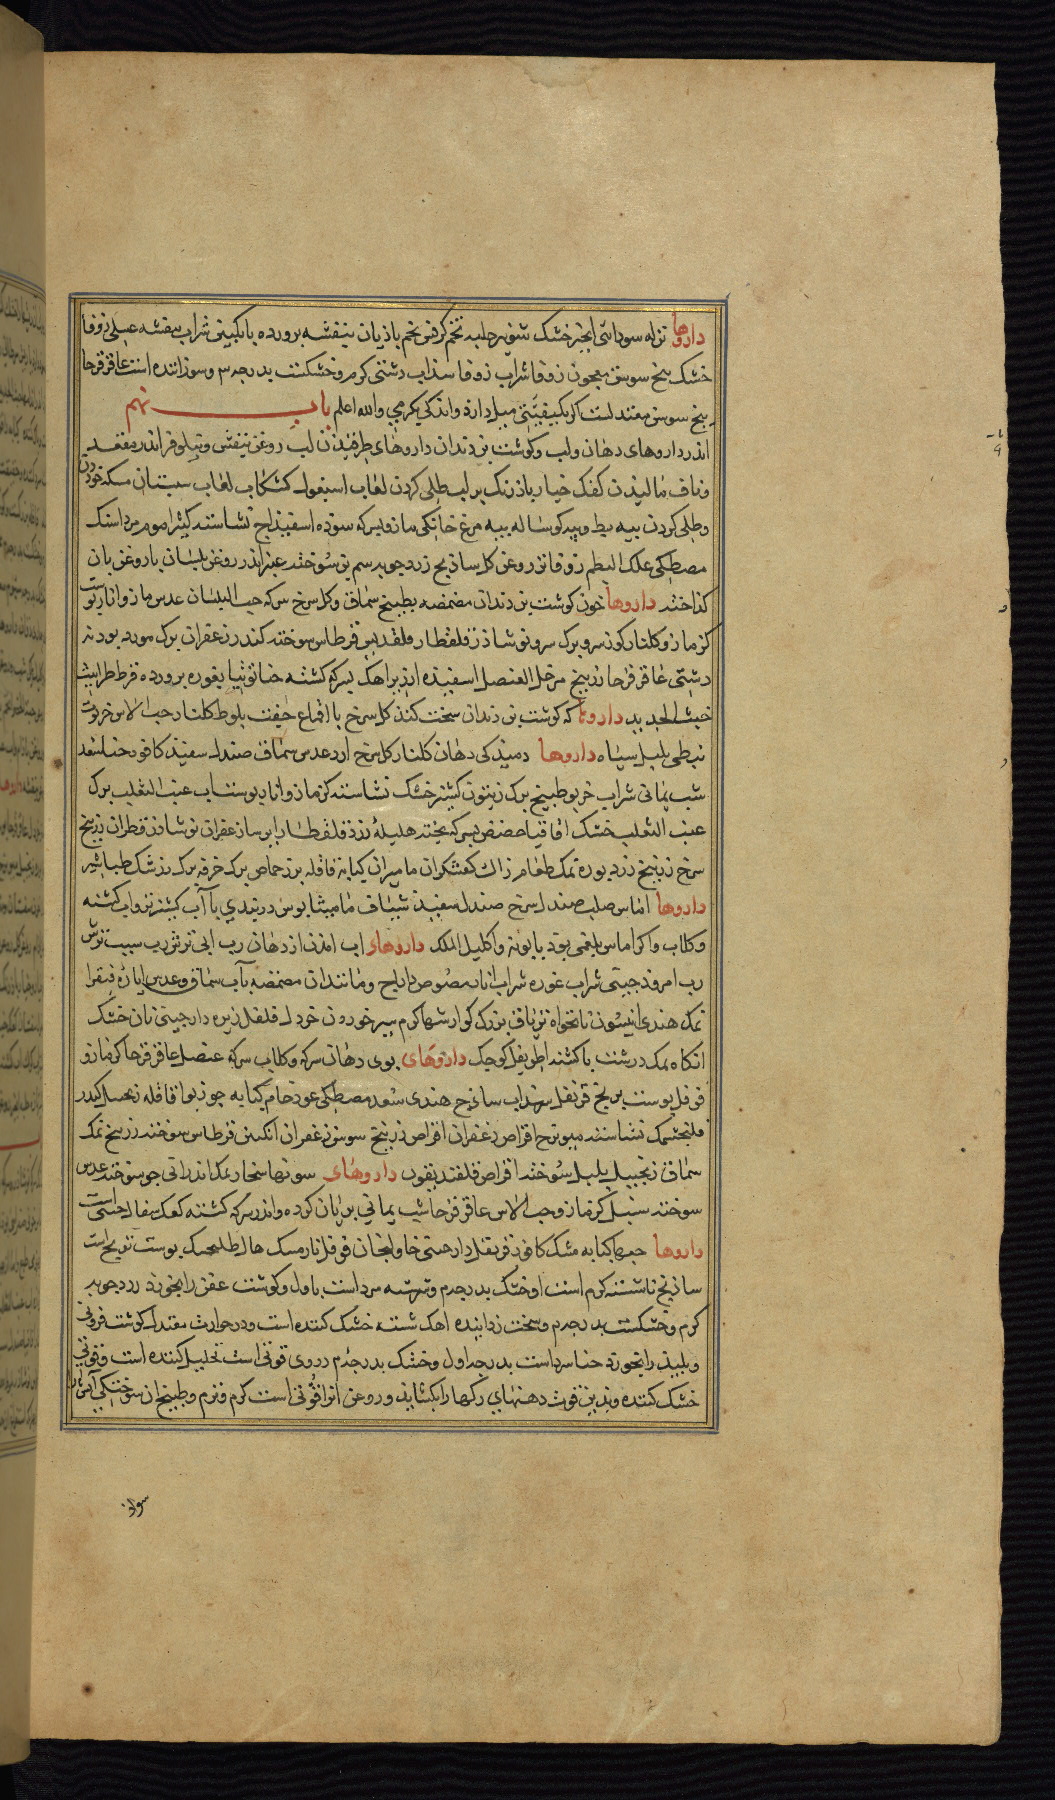 داروها نزله سودائی انجیر خشک شونیز حلبه تخم کرفس تخم باذیان بنفشه برورده بانکبین شراب بنفشه عسلی زوفا
خشک بیخ سوسن معجون زوفا شراب زوفا سذاب دشتی کرم و خشکست بدرجه س وسوزاننده است عاقرقرحا
بیخ سوسن معتدلست اکر بکیفیتی میل دارد واندکی بکرمی والله اعلم باب نهم
اندر داروهای دهان ولب وکوشت بن دندان داروهای طرقیذن لب روغن بنفشی ونیلوفر اندر مقعد
وناف مالیذن کفک خیار باذرنک بر لب طلی کردن لعاب اسبغول کشکاب لعاب سبستان مسکه خوردن
وطلی کردن بیه بط وبیه کوساله بیه مرغ خانکی مازو بسرکه سوده اسفیذاج نشاسته کثیرا موم مرداسنک
مصطکی علک البطم زوفاتر روغن کل ساذنج زردجوبه سم بز سوخته عنبر اندر روغن بلسان یا روغن بان
کذاخته داروها خون کوشت بن دندان مضمضه بطبیخ سماق وکل سرخ سرکه حب البلسان عدس مازو انار بوست
کزمازو کلنار کوز سرو برک سرو نوشاذر قلقطار قلقدیس قرطاس سوخته کندر زعفران برک مورد بودنه
دشتی عاقرقرحا زرنیخ سرخ خل العنصل اسفیذه اذیر اهک بسرکه کشته حنا توتیا بغوره برورده قرط طراثیث
خبث الحدید داروها که کوشت بن دندان سخت کنذ کل سرخ با اقماع جفت بلوط کلنار حب الاس خربوب
نبطی هلیله سیاه داروها دمیذکی دهان کلنار کل سرخ ارد عدس سماق صندل سفیذ کافور حنا سعد
شب یمانی شراب خربو طبیخ برک زیتون کشنیز خشک نشاسته کزمازو انار بوست اب عنب الثعلب برک
عنب الثعلب خشک اقاقیا حضض بسرکه بخته هلیله زرد قلقطار ایرسا زعفران نوشاذر قطران زرنیخ
سرخ زرنیخ زرد بوره نمک طعام زاک کفشکران مامیران کبابه قاقله بزر حماض برک خرفه برک زرشک طباشیر
داروها اماس صلب صندل سرخ صندل سفیذ شیاف مامیثا بوس دربندی با آب کشنیز تر واب کشنه
وکلاب واکر اماس بلغمی بوذ بابونه واکلیل الملک داروهای اب امذن از دهان رب ابی ترش رب سیب ترش
رب امروذ جینی شراب غوره شراب انار مصوص دراج ومانند ان مضمضه بآب سماق وعدس ایاره فیقرا
نمک هندی انیسون نانخواه تریاق بزرک کوارشها کرم سیر خوردن خردل فلفل زیره دارجینی نان خشک
انکاه نمک درشت با کشنه اطریفل کوجک داروهای بوی دهان سرکه وکلاب سرکه عنصل عاقرقرحا کزمازو
فوفل بوست ترنج قرنفل سنداب ساذج هندی سعد مصطکی عود خام کبابه جوز بوا قاقله زنجبیل کندر
فلنجمشک نشاسته میویزج اقراص زعفران اقراص زرنیخ سوسن زعفران انکبین قرطاس سوخته زرنیخ نمک
سماق زنجبیل بلبل سوخته اقراص فلفندیقون داروهای سونها سنجار نمک اندرانی جو سوخته عدس
سوخته سنبل کزمازو حب الاس عاقرقرحا شب یمانی بریان کرده واندر سرکه کشته کعک سفال جینی است
داروها حبها کبابه مشک کافور قرنفل دارجینی خاولنجان فوفل نارمسک هال بوست ترنج است
ساذنج ناشسته کرم است اوخشک بدرجه دوم وشسته سرد است باول وکوشت عفن را بخورد زردجوبه
کرم وخشکست بدرجه دوم وسخت زداینده اهک شسته خشک کننده است ودر حوادث معتدل کوشت فزونی
وبلیذ را بخورد حنا سرد است بدرجه اول وخشک بدرجه دوم در وی قوتی است تحلیل کننده است وقوتی
خشک کننده وبدین قوت دهنهای رکها را بکشاید وروغن انرا قوتی است کرم ونرم وطبیخ ان سوختکی آتش را
سود